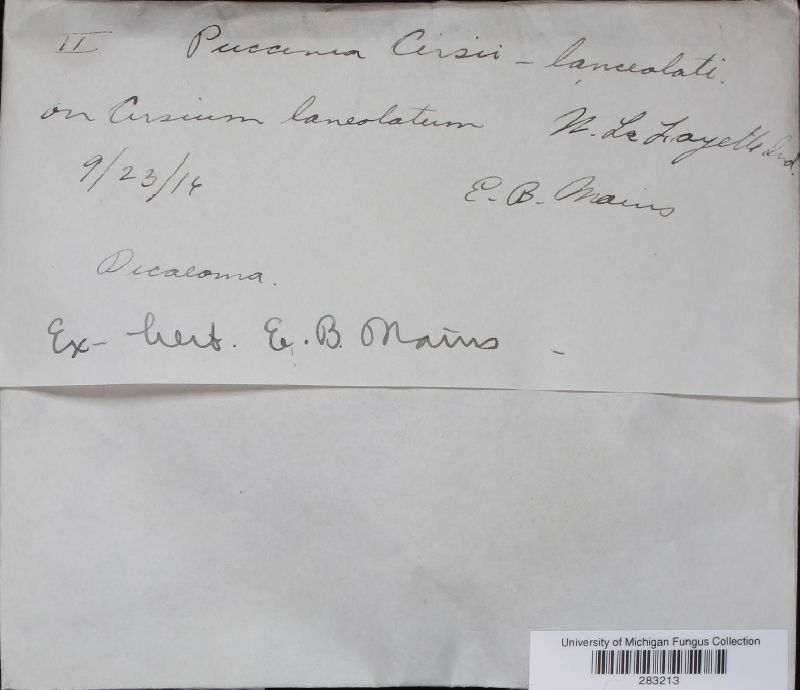 II Puccinia Cirsii - lanceolati.
on Cirsium lanceolatum W. La Fayette Ind.
9/23/16
E. B. Mains
Dicaeoma.
Ex- herb. E. B. Mains -
University of Michigan Fungus Collection
283213